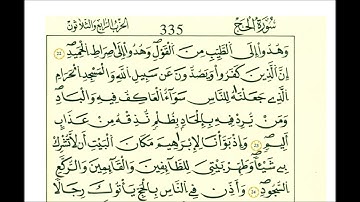 سُورَةُ الْحَجِّ 335 الحزب الرابع والثلاثون
وَهُدُوٓاْ إِلَى اَ۬لطَّيِّبِ مِنَ اَ۬لْقَوْلِ وَهُدُوٓاْ إِلَىٰ صِرَٰطِ اِ۬لْحَمِيدِ
إِنَّ اَ۬لذِينَ كَفَرُواْ وَيَصُدُّونَ عَن سَبِيلِ اِ۬للَّهِ وَالْمَسْجِدِ اِ۬لْحَرَامِ
اِ۬لذِے جَعَلْنَٰهُ لِلنَّاسِ سَوَآءٌ اُ۬لْعَٰكِفُ فِيهِ وَالْبَادِ
وَمَنْ يُّرِدْ فِيهِ بِإِلْحَادِۢ بِظُلْمٍ نُّذِقْهُ مِنْ عَذَابٍ
اَلِيمٍ وَإِذْ بَوَّأْنَا لِإِبْرَٰهِيمَ مَكَانَ اَ۬لْبَيْتِ أَن لَّا تُشْرِكْ
بِے شَيْـٔاً وَطَهِّرْ بَيْتِيَ لِلطَّآئِفِينَ وَالْقَآئِمِينَ وَالرُّكَّعِ
اِ۬لسُّجُودِ وَأَذِّن فِے اِ۬لنَّاسِ بِالْحَجِّ يَأْتُوكَ رِجَالاً